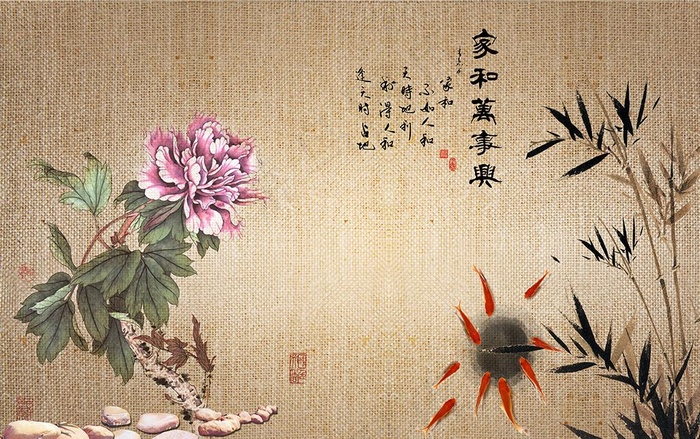 家和萬事興
逢天時占地
利得人和
天時地利
不如人和
家和